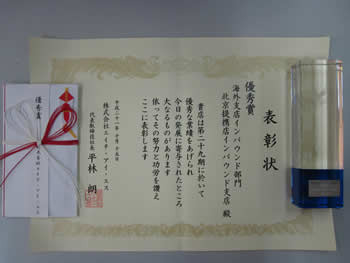 表彰状
優秀賞
海外支店インバウンド部門
北京提携店インバウンド支店 殿
貴店は第二十九期に於いて
優秀な業績をあげられ
今日の発展に寄与されたところ
大なるものがあります
依ってその努力と功労を讃え
ここに表彰します
平成二十一年十月十五日
株式会社エイチ・アイ・エス
代表取締役社長 平林 朗
優秀賞